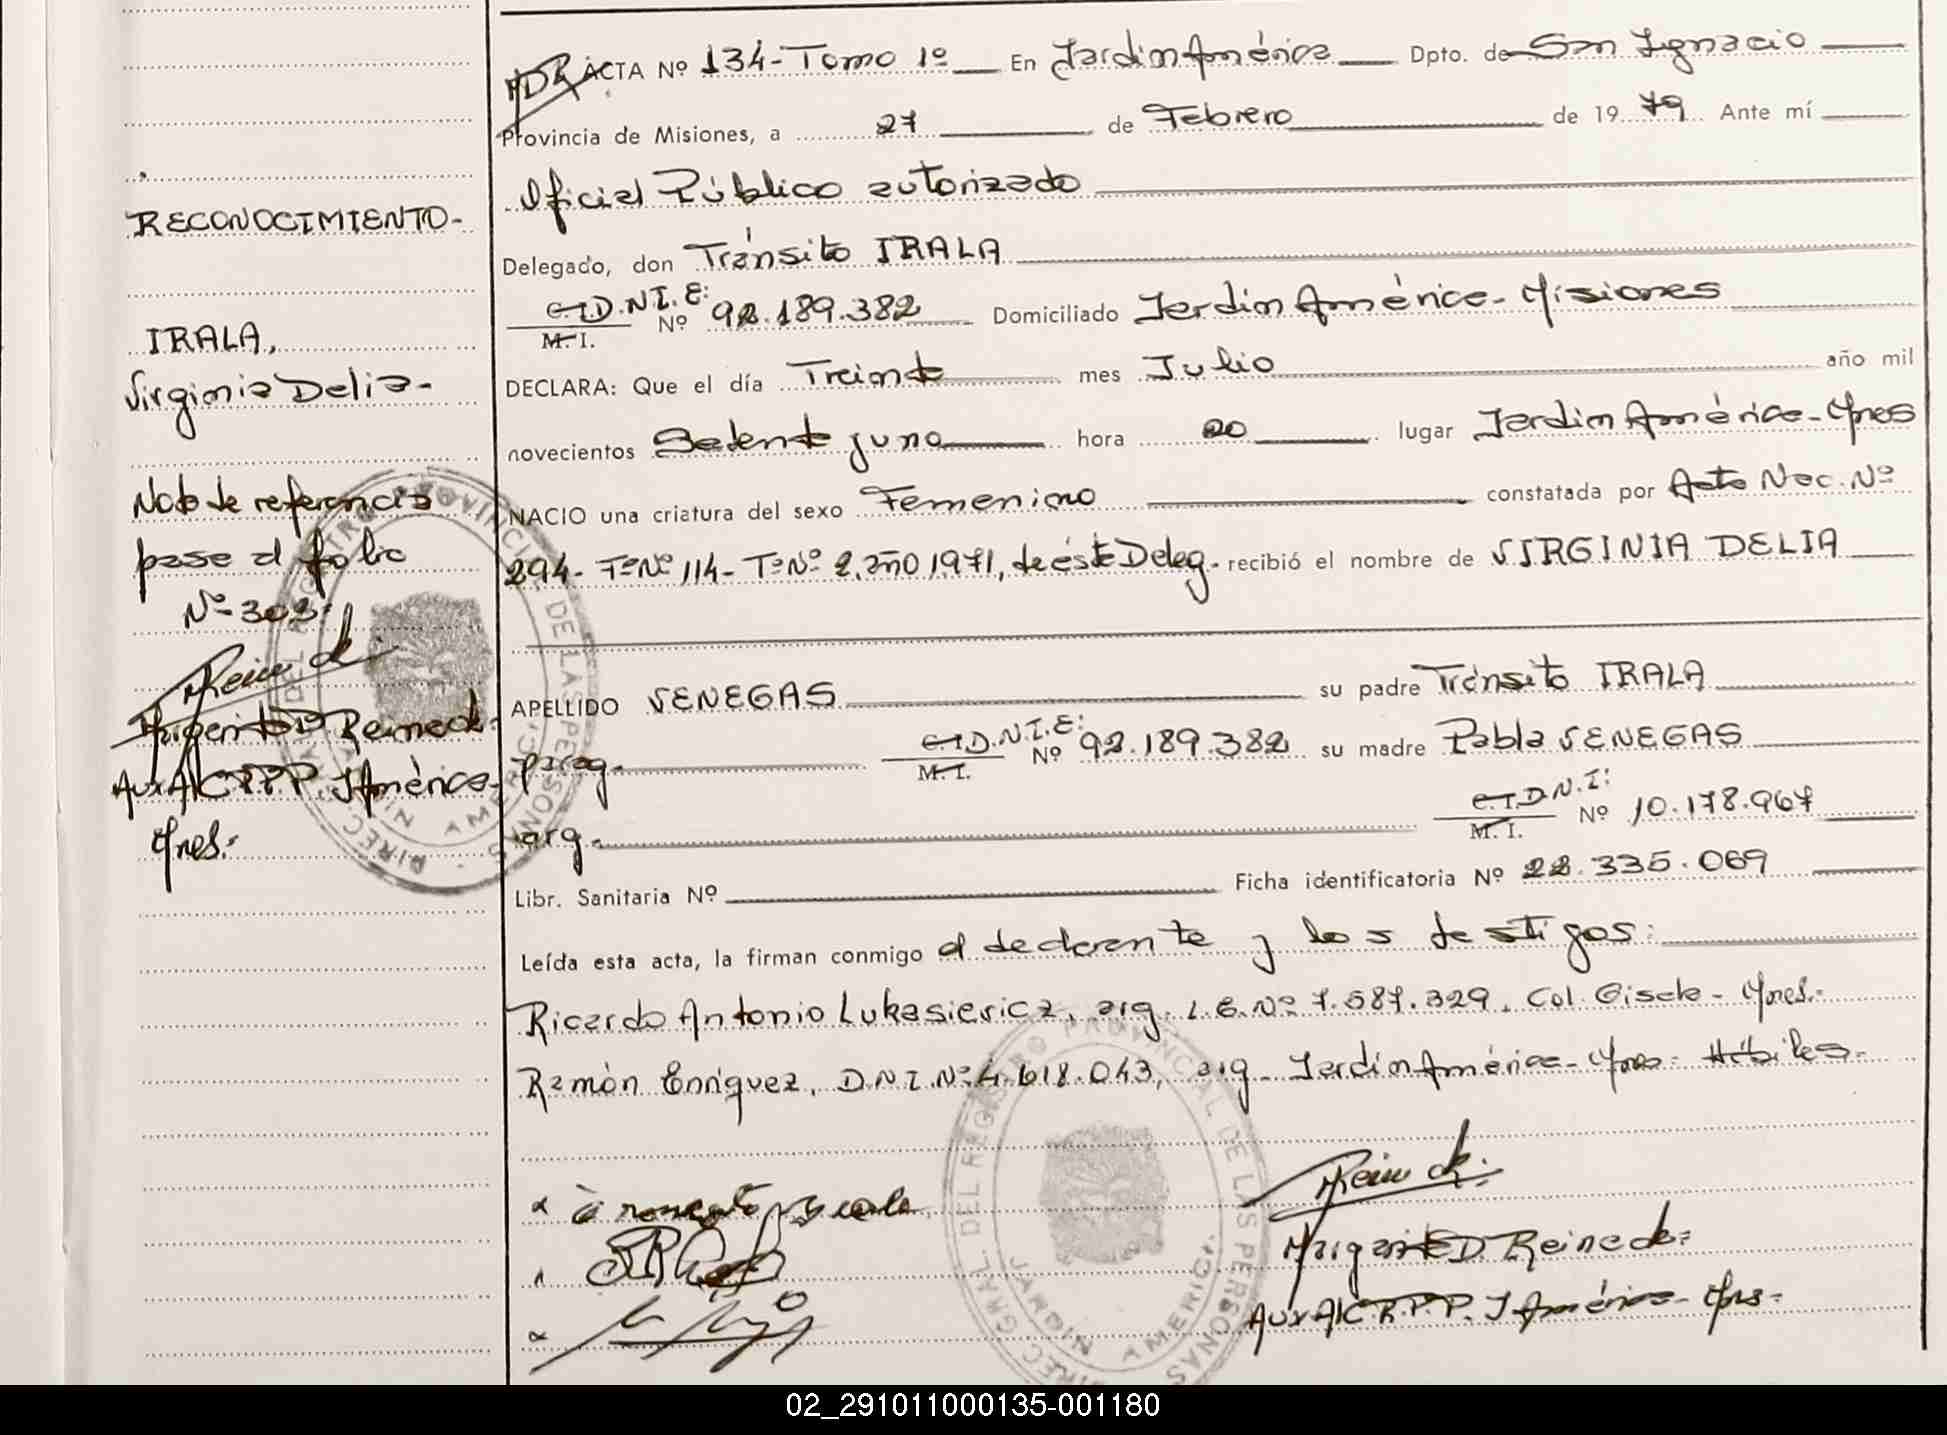 ACTA Nº 134-Tomo 1º En Jardín América Dpto. de San Ignacio
Provincia de Misiones, a 27 de Febrero de 1979 Ante mí
Oficial Público autorizado
Delegado, don Tránsito IRALA
C.I.D.N.I.E: M.I. Nº 92.189.382 Domiciliado Jardín América-Misiones
DECLARA: Que el día Treinta mes Julio año mil
novecientos Setenta y uno hora 20 lugar Jardín América-Mnes
NACIO una criatura del sexo Femenino constatada por Acta Nac. Nº
294- Fº Nº 114- Tº Nº 2, año 1971, de ésta Deleg. recibió el nombre de VIRGINIA DELIA
APELLIDO VENEGAS su padre Tránsito IRALA
parag. C.I.D.N.I.E: M.I. Nº 92.189.382 su madre Pabla VENEGAS
arg. C.I.D.N.I: M.I. Nº 10.178.967
Libr. Sanitaria Nº Ficha identificatoria Nº 22.335.069
Leída esta acta, la firman conmigo el declarante y los testigos:
Ricardo Antonio Lukasiericz, arg. L.E. Nº 7.587.329, Col. Gisela- Mnes.-
Ramón Enriquez, D.N.I. Nº 4.618.043, arg- Jardín América- Mnes- Hábiles-
Margarita D Reineck:
Aux A/C R.P.P. J América- Mnes-
RECONOCIMIENTO-
IRALA,
Virginia Delia-
Nota de referencia
pase al folio
Nº-303:
Margarita D Reineck:
Aux A/C R.P.P. J América-
Mnes.-
DIREC. GRAL DEL REGISTRO PROVINCIAL DE LAS PERSONAS
JARDIN AMERICA
DIREC. GRAL DEL REGISTRO PROVINCIAL DE LAS PERSONAS
JARDIN AMERICA
02_291011000135-001180